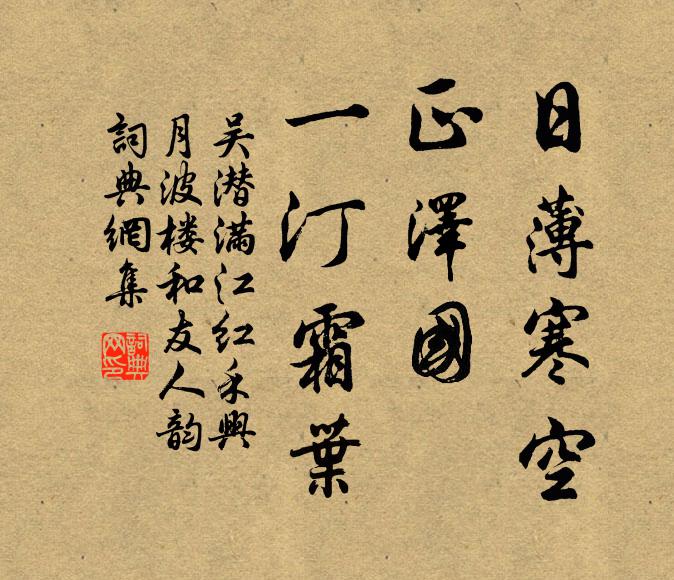 日薄寒空
正澤國
一汀霜葉
吴潜满江红禾興
月波楼和友人韵
詞典網集
詞典網印